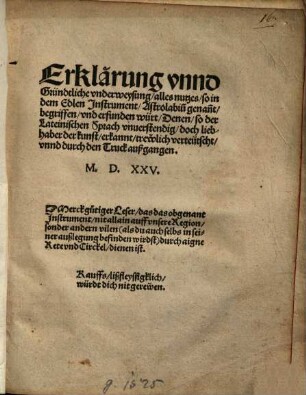 Erklårung vnnd
Gründtliche vnderweysung/ alles nutzes/ so in
dem Edlen Instrument/ Astrolabiū genañt/
begriffen/ vnd erfunden würt/ Denen/ so der
Lateinischen Sprach vnuerstendig/ doch lieb-
haber der kunst/ erkannt/ trewlich verteütscht/
vnnd durch den Truck außgangen.
M. D. XXV.
Merck gütiger Leser/ das das obgenant
Instrument/ nit allain auff vnsere Region/
sonder andern vilen (als du auch selbs in sei-
ner außlegung befinden wirdst) durch aigne
Rete vnd Circkel/ dienen ist.
Kauffs/ liß fleyssigklich/
würdt dich nit gerewen.
g. 1525